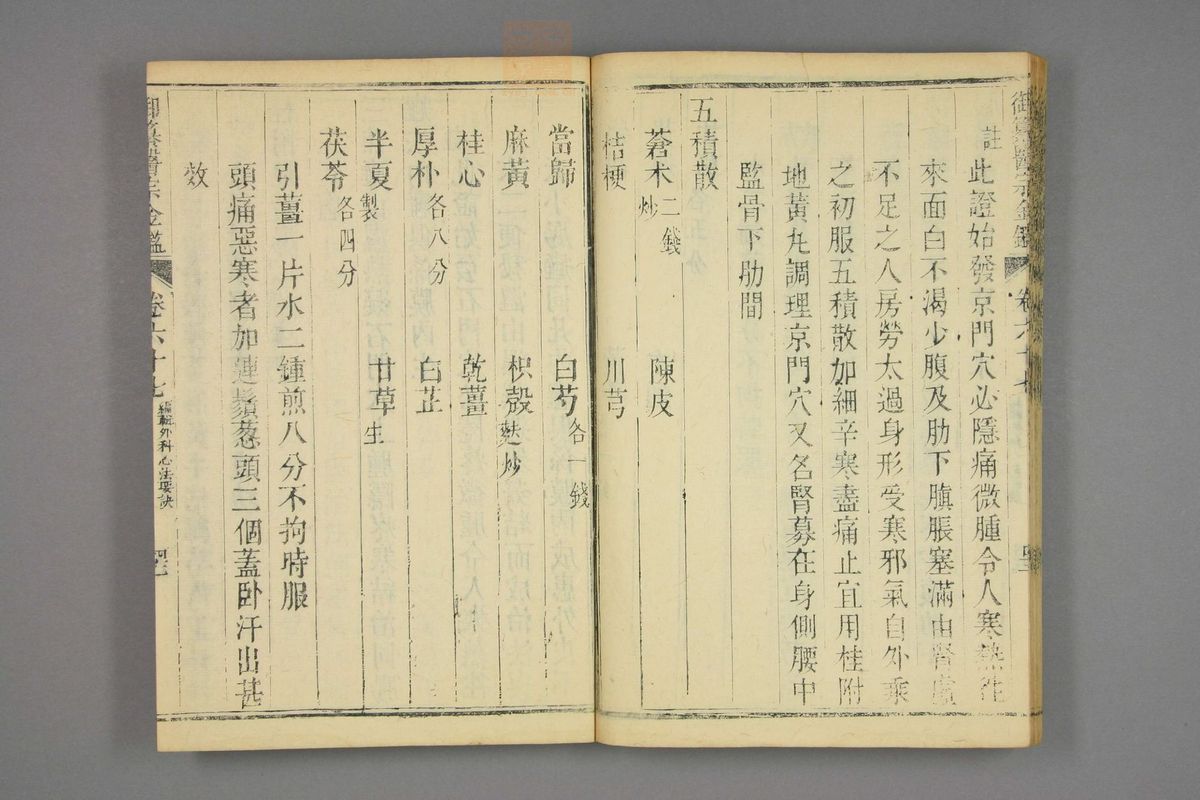 註 此證始發京門穴必隱痛微腫令人寒熱往
來面白不渴少腹及肋下䐜脹塞滿由腎虛
不足之人房勞太過身形受寒邪氣自外乘
之初服五積散加細辛寒盡痛止宜用桂附
地黃丸調理京門穴又名腎募在身側腰中
監骨下肋間
五積散
蒼朮 炒 二錢 陳皮
桔梗 川芎
當歸 白芍 各一錢
麻黃 枳殼 麩炒
桂心 乾薑
厚朴 各八分 白芷
半夏 製 甘草 生
茯苓 各四分
引薑一片水二鍾煎八分不拘時服
頭痛惡寒者加連鬚葱頭三個蓋臥汗出甚
效
御纂醫宗金鑑 卷六十七 編輯外科心法要訣